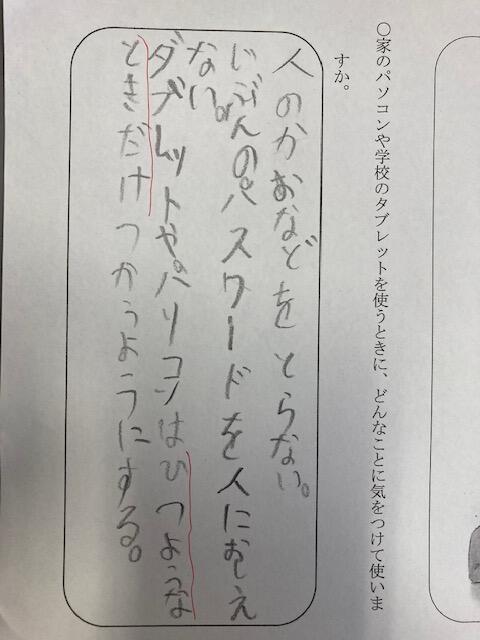 ○家のパソコンや学校のタブレットを使うときに、どんなことに気をつけて使いま
すか。
人のかおなどをとらない。
じぶんのパスワードを人におしえ
ない。
ダブレットやパリコンはひつような
ときだけつかうようにする。